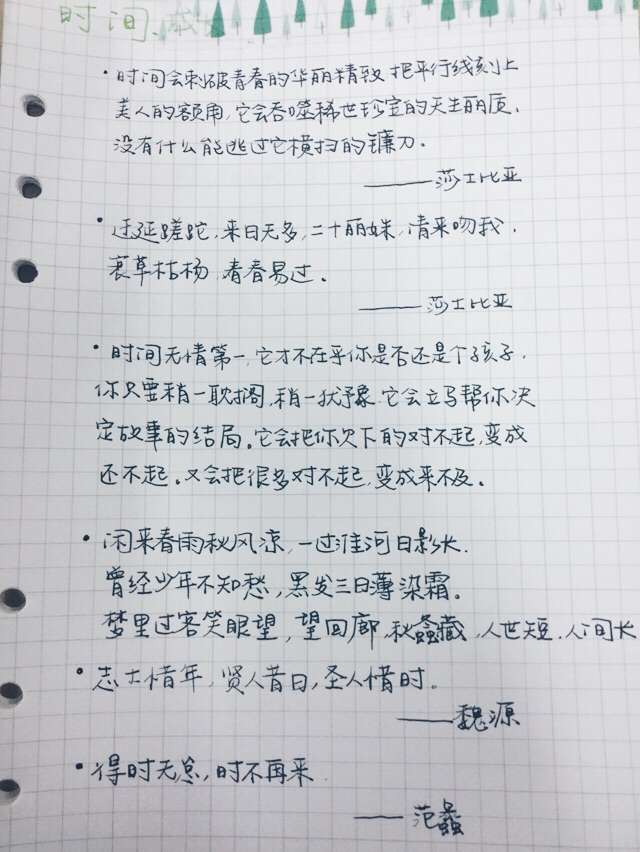 时间.成长
·时间会刺破青春的华丽精致 把平行线刻上
美人的额角,它会吞噬稀世珍宝的天生丽质.
没有什么能逃过它横扫的镰刀.
——莎士比亚
·迁延蹉跎,来日无多,二十丽姝,请来吻我.
衰草枯杨 青春易过.
——莎士比亚
·时间无情第一,它才不在乎你是否还是个孩子.
你只要稍一耽搁,稍一犹豫.它会立马帮你决
定故事的结局。它会把你欠下的对不起,变成
还不起。又会把很多对不起,变成来不及。
·闲来春雨秋风凉,一过淮河日影长.
曾经少年不知愁,黑发三日薄染霜。
梦里过客笑眼望,望回廊,秋螽藏,人世短.人间长
·志士惜年,贤人惜日,圣人惜时。
——魏源
·得时无怠,时不再来
——范蠡